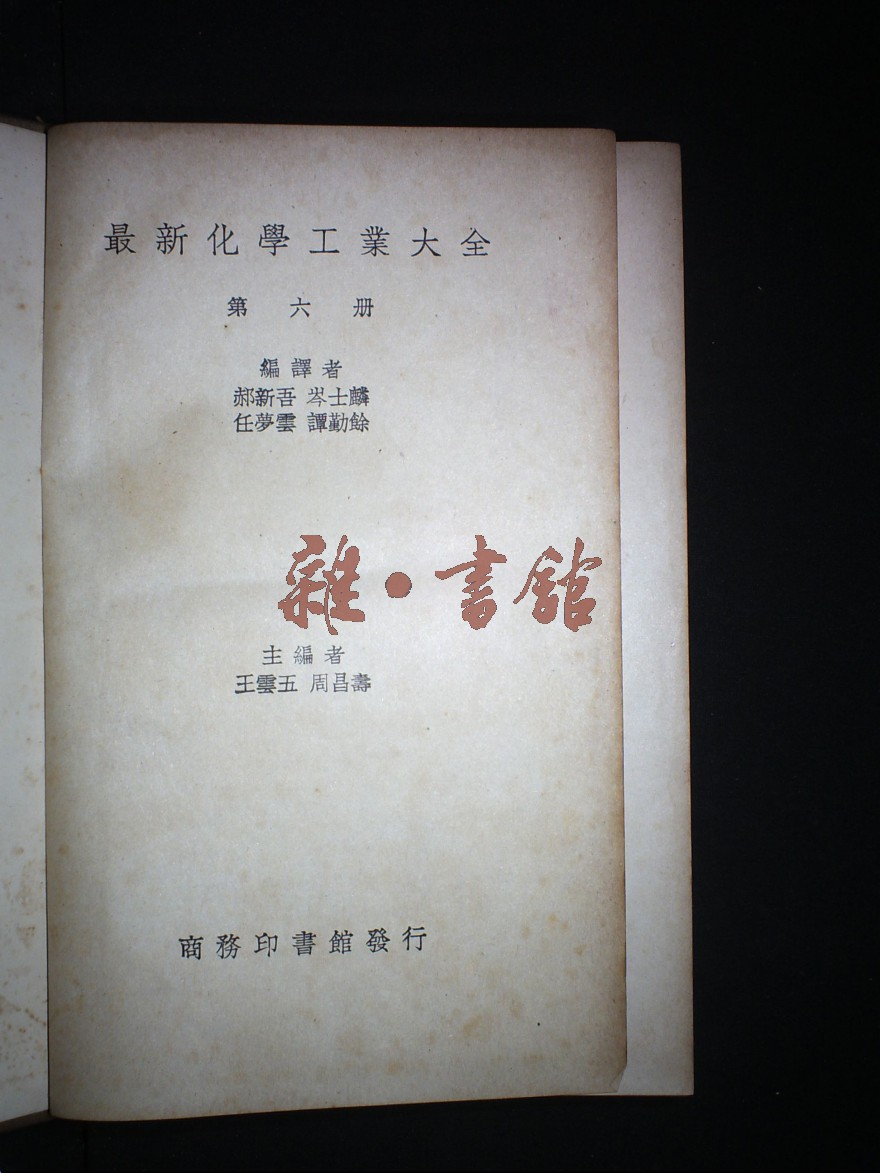 最新化學工業大全
第六册
編譯者
郝新吾 岑士麟
任夢雲 譚勤餘
雜·書館
主編者
王雲五 周昌壽
商務印書館發行